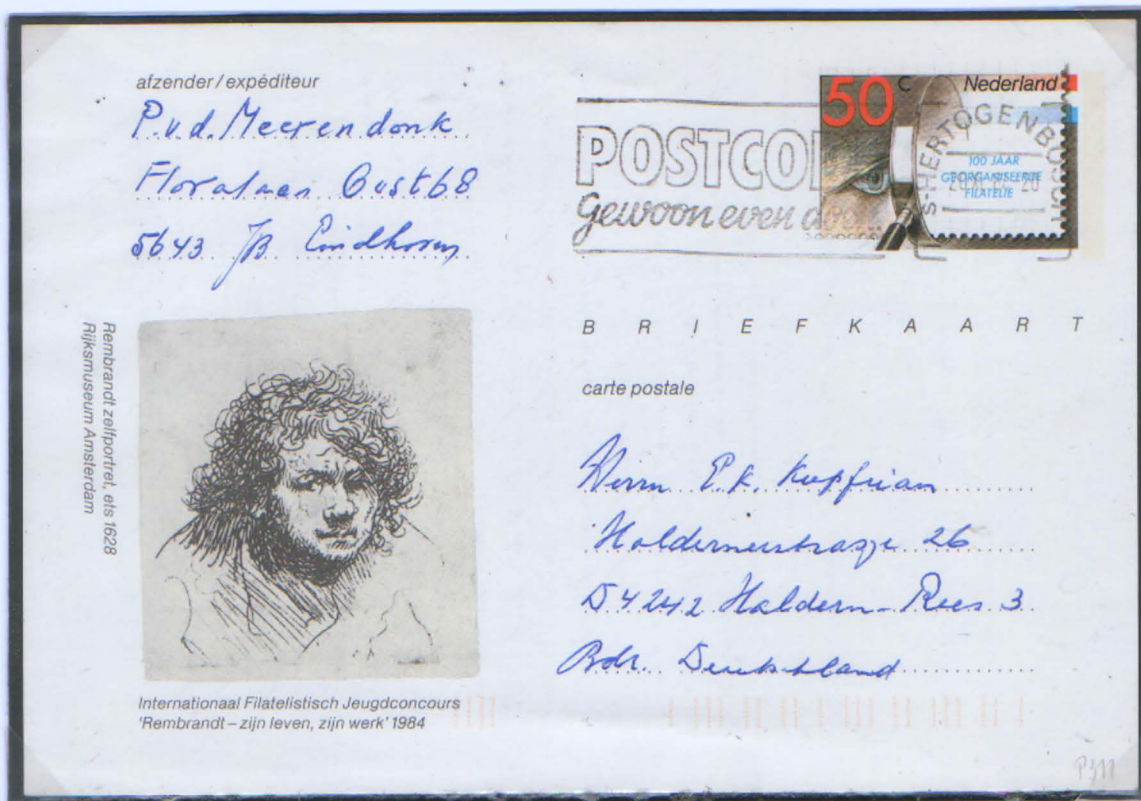 afzender / expéditeur
P.v.d. Meerendonk
Floralaan Oost 68
5643 JB Eindhoven
50 c Nederland
100 JAAR
GEORGANISEERDE
FILATELIE
POSTCO
Gewoon even do
'S-HERTOGENBOSCH
BRIEFKAART
carte postale
Herrn P.K. Kopfrian
Haldernerstrasse 26
D 4242 Haldern-Rees 3
Bdr. Deutschland
Rembrandt zelfportret, ets 1628
Rijksmuseum Amsterdam
Internationaal Filatelistisch Jeugdconcours
'Rembrandt – zijn leven, zijn werk' 1984
P311